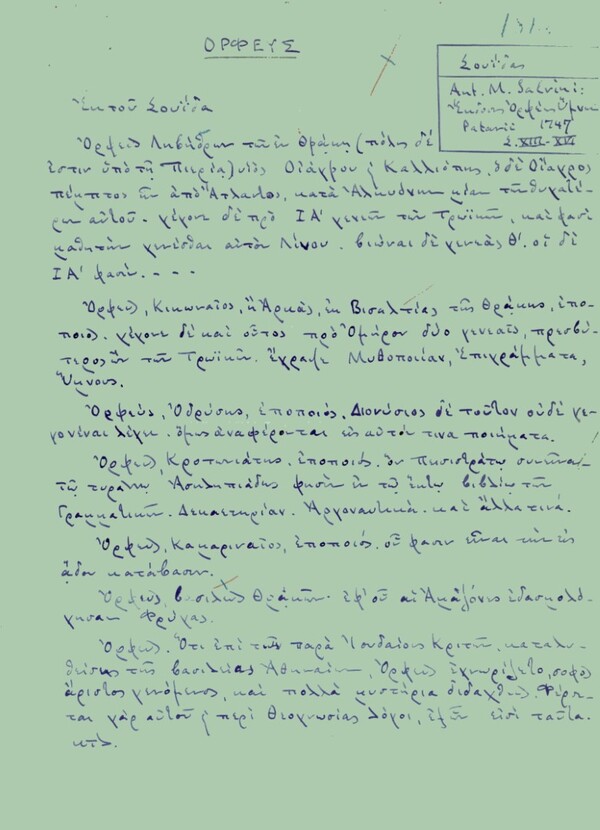 ΟΡΦΕΥΣ
Σουΐδας
Ant. M. Salvini:
Ἔκδοσις Ὀρφέως Ὕμνοι
Patavii 1747
Σ. XIII-XIV
Ἐκ τοῦ Σουΐδα
Ὀρφεὺς Λιβήθρων τῶν ἐν Θράκῃ (πόλις δέ
ἐστιν ὑπὸ τῇ Πιερίᾳ) υἱὸς Οἰάγρου ἢ Καλλιόπης, ὁ δὲ Οἴαγρος
πέμπτος ἦν ἀπὸ Ἄτλαντος, κατὰ Ἀλκυόνην μίαν τῶν θυγατέ-
ρων αὐτοῦ. γέγονε δὲ πρὸ ΙΑ' γενεῶν τῶν Τρωϊκῶν, καὶ φασὶ
μαθητὴν γενέσθαι αὐτὸν Λίνου. βιῶναι δὲ γενεὰς Θ'. οἱ δὲ
ΙΑ' φασίν. - - - -
Ὀρφεὺς, Κικωναῖος, ἢ Ἀρκὰς, ἐκ Βισαλτίας τῆς Θρᾴκης, ἐπο-
ποιός. γέγονε δὲ καὶ οὗτος πρὸ Ὁμήρου δύο γενεαῖς, πρεσβύ-
τερος ὢν τῶν Τρωϊκῶν. ἔγραψε Μυθοποιίαν, Ἐπιγράμματα,
Ὕμνους.
Ὀρφεὺς, Ὀδρύσης, ἐποποιός. Διονύσιος δὲ τοῦτον οὐδὲ γε-
γονέναι λέγει. ὅμως ἀναφέρονται εἰς αὐτόν τινα ποιήματα.
Ὀρφεὺς, Κροτωνιάτης. ἐποποιός. ὃν Πεισιστράτῳ συνεῖναι
τῷ τυράννῳ Ἀσκληπιάδης φησὶν ἐν τῷ ἕκτῳ βιβλίῳ τῶν
Γραμματικῶν. Δεκαετηρίαν. Ἀργοναυτικά. καὶ ἄλλα τινά.
Ὀρφεὺς, Καμαριναῖος, ἐποποιός. οὗ φασιν εἶναι τὴν εἰς
ᾅδου κατάβασιν.
Ὀρφεὺς, βασιλεὺς Θρᾳκῶν. ἐφ' οὗ αἱ Ἀμαζόνες ἐδασμολό-
γησαν Φρύγας.
Ὀρφεὺς. Ὅτι ἐπὶ τῶν παρὰ Ἰουδαίοις Κριτῶν, καταλυ-
θείσης τῆς βασιλείας Ἀθηναίων, Ὀρφεὺς ἐγνωρίζετο, σοφὸς
ἄριστος γενόμενος, καὶ πολλὰ μυστήρια διδαχθεὶς. Φέρον-
ται γὰρ αὐτοῦ ἢ περὶ Θεογνωσίας λόγοι, ἐξ ὧν εἰσὶ ταῦτα.
κτλ.